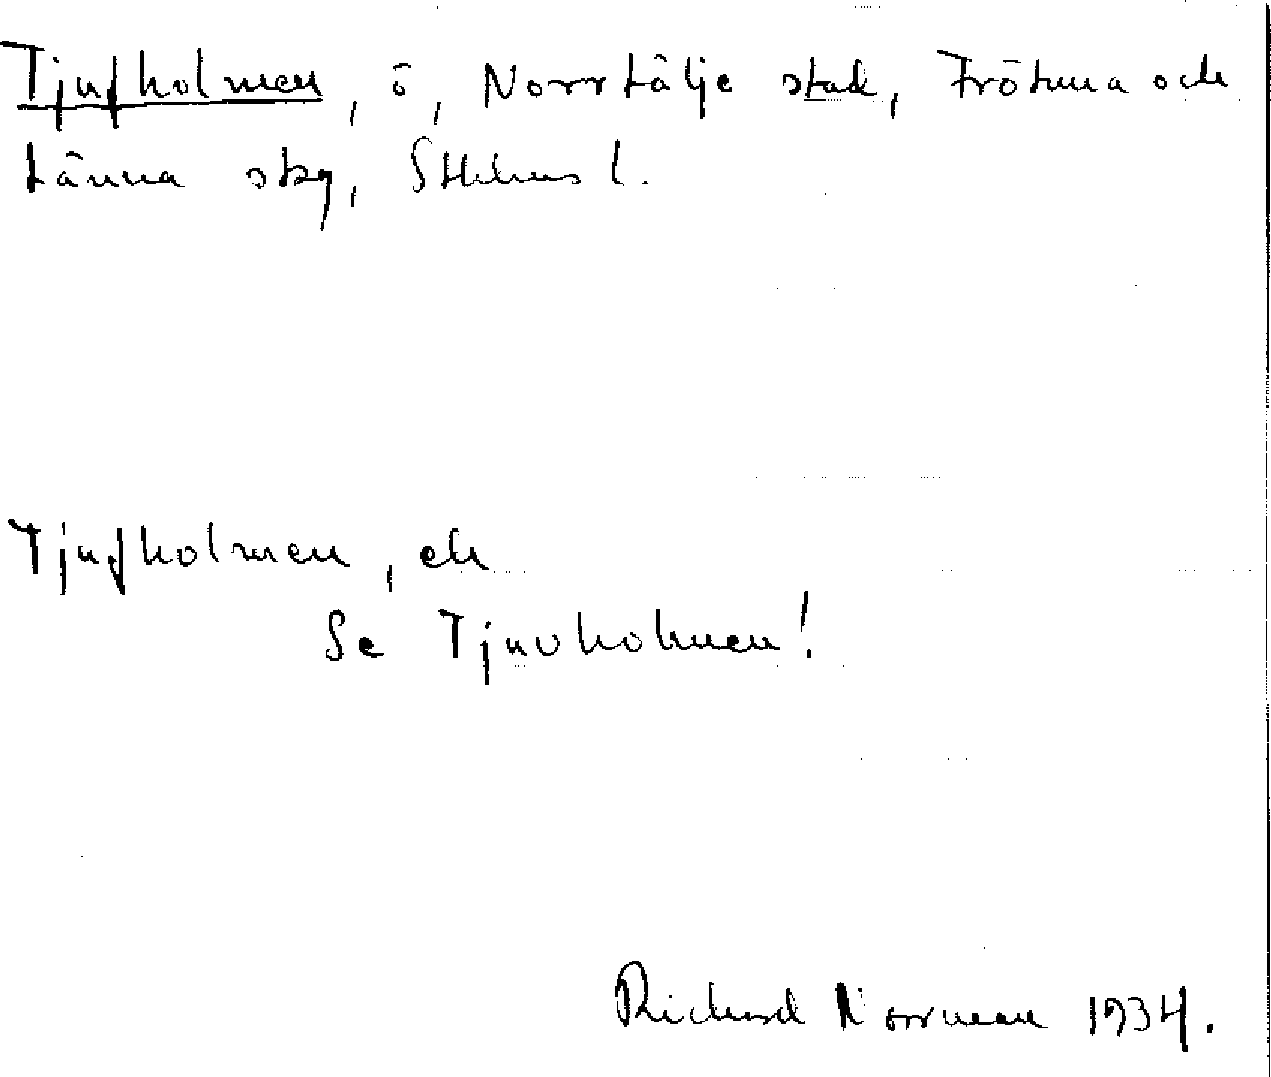 Tjufholmen, ö, Norrtälje stad, Frötuna och
Länna skg, Sthlms l.
Tjufholmen, ö
Se Tjuvholmen!
Richard Norrman 1934.